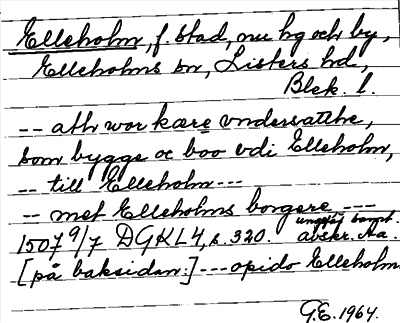 Elleholm, f. stad, nu hg och by,
Elleholms sn, Listers hd,
Blek. l.
-- ath wor kære vndersatthe,
som bygge oc boo vdi Elleholm,
-- till Elleholm ---
-- met Elleholms borgere ---
1507 9/7 DGKL 4, s. 320. avskr. Aa.
[på baksidan:] --- opido Elleholm
G.E. 1964.